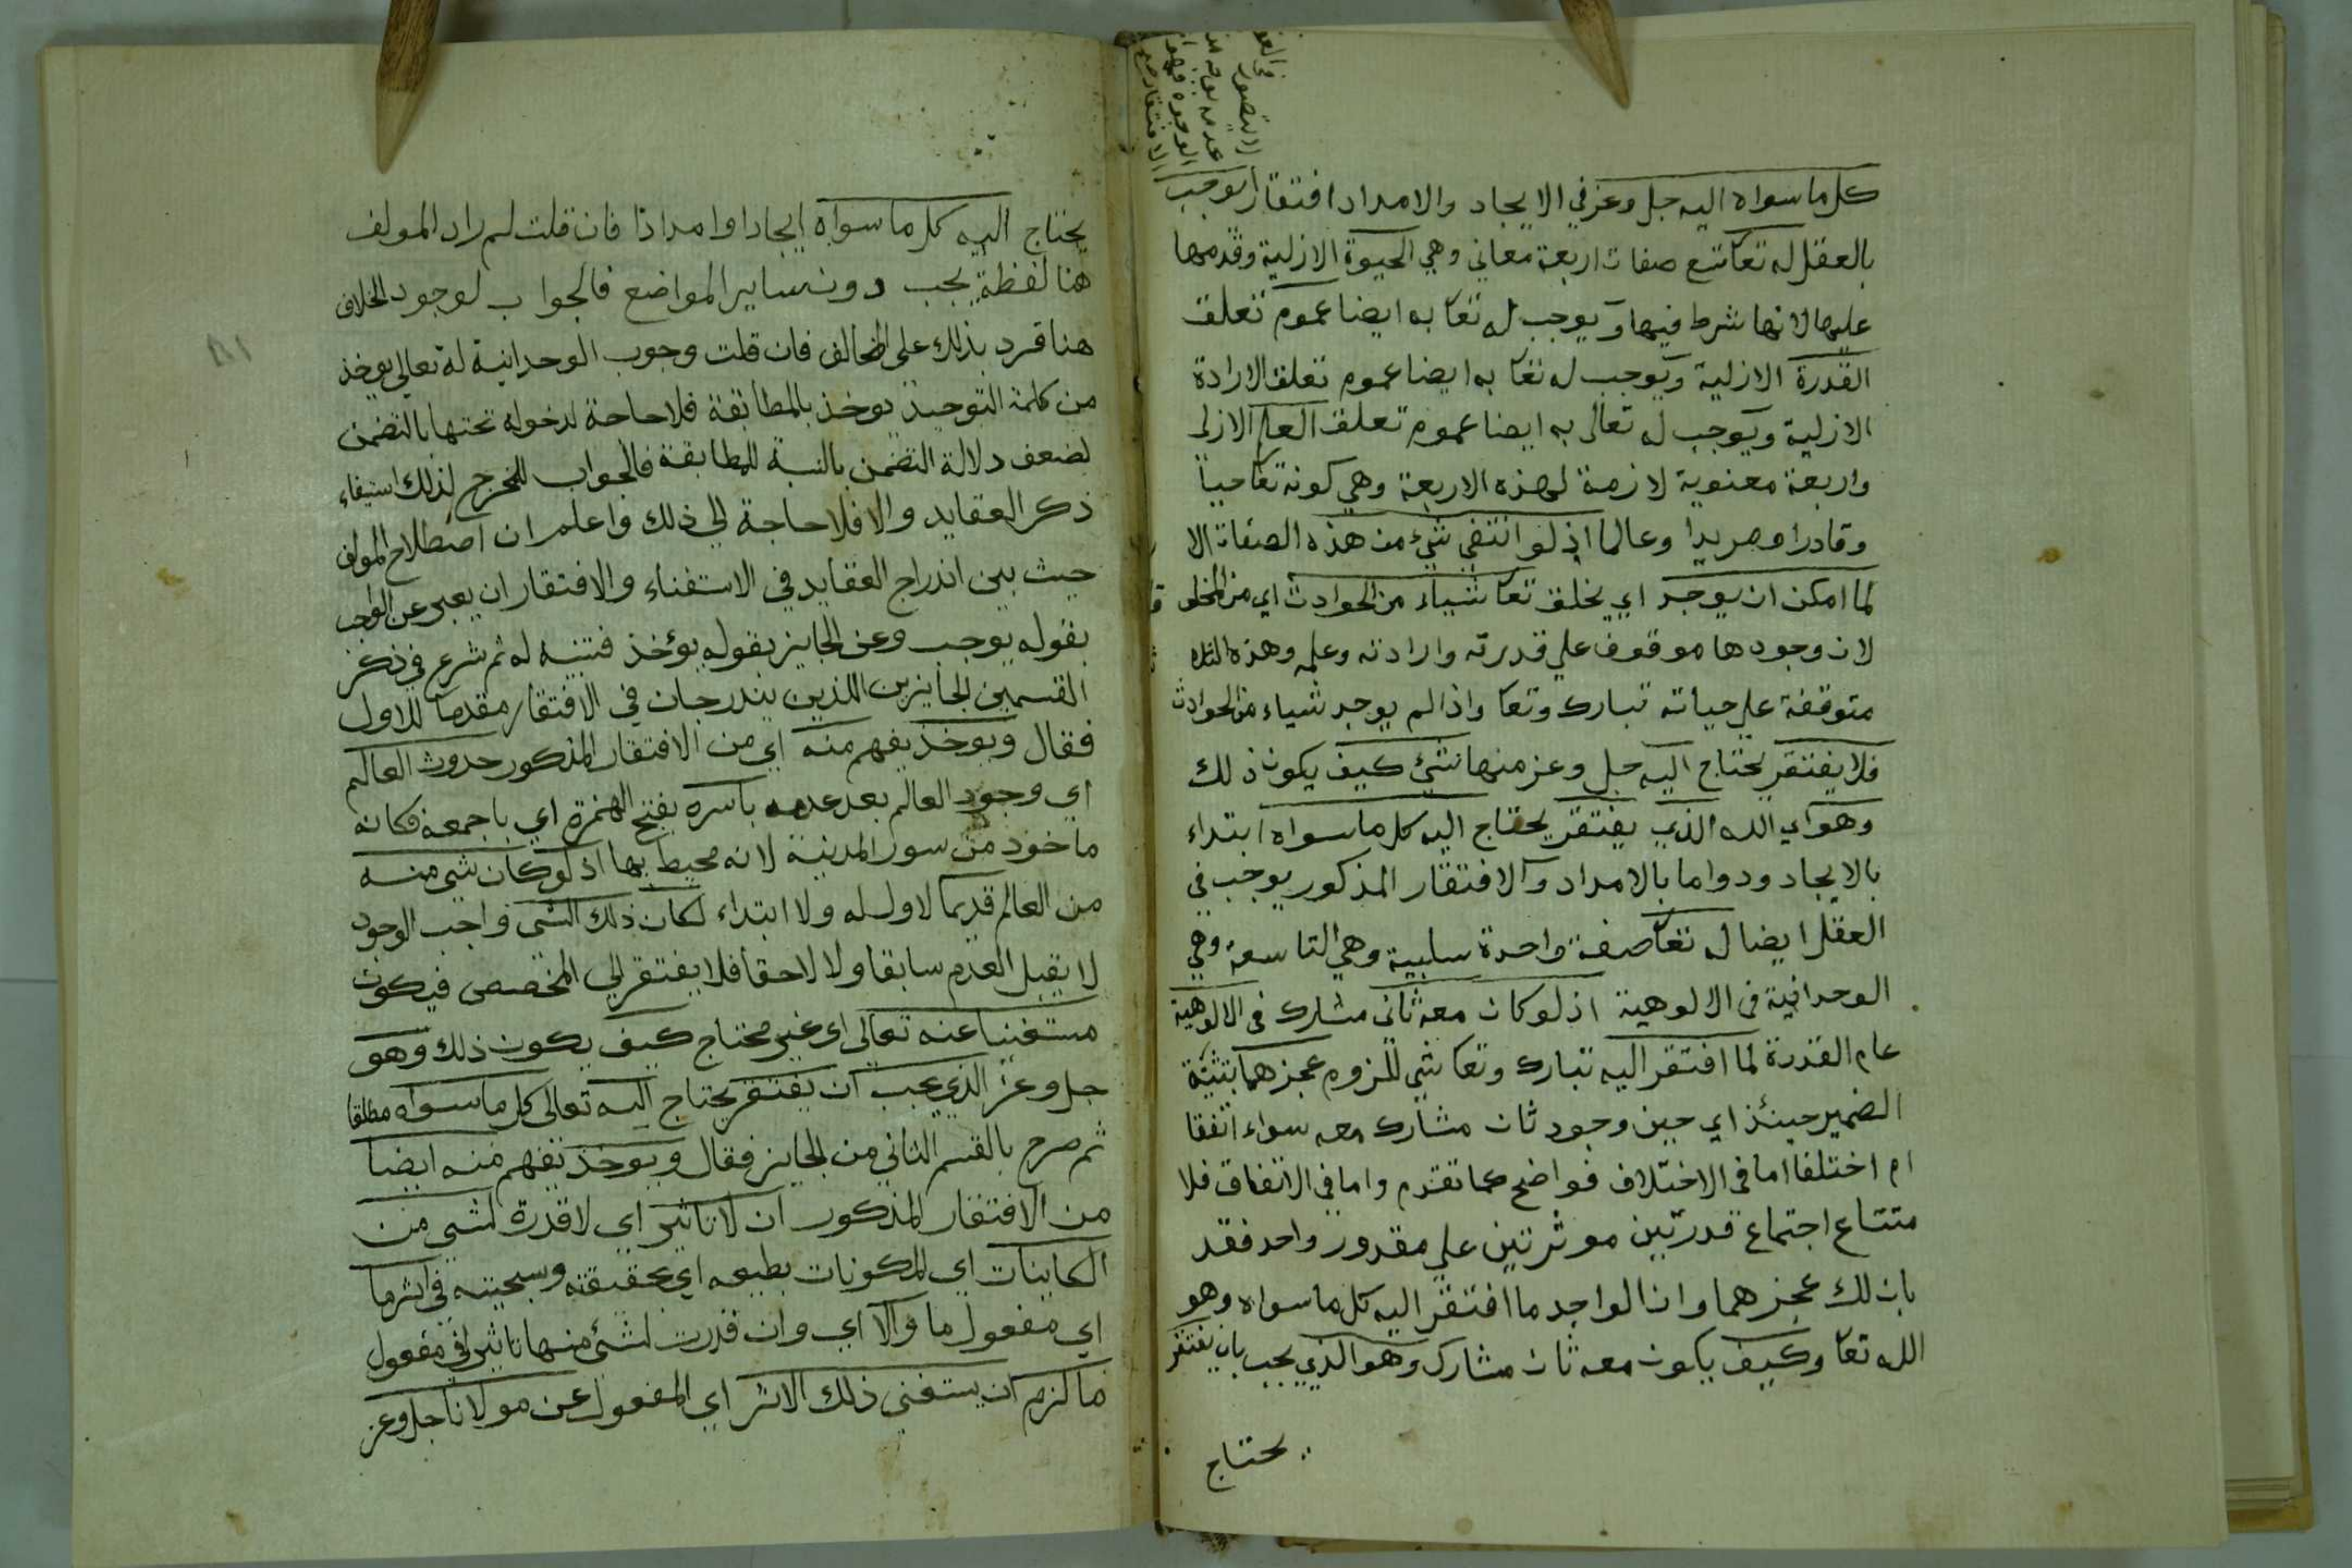 كل ما سواه اليه جل وعز في الايجاد والامداد افتقارا يوجب
بالعقل له تعا تسع صفات اربعة معاني وهي الحيوة الازلية وقدمها
عليها لانها شرط فيها ويوجب له تعا به ايضا عموم تعلق
القدرة الازلية ويوجب له تعا به ايضا عموم تعلق الارادة
الازلية ويوجب له تعالى به ايضا عموم تعلق العلم الازلي
واربعة معنوية لازمة لهذه الاربعة وهي كونه تعا حيا
وقادرا ومريدا وعالما اذ لو انتفي شيء من هذه الصفات الا
لما امكن ان يوجد اي يخلق تعا شياء من الحوادث اي من المخلو
لان وجودها موقوف علي قدرته وارادته وعلمه وهذه الثلاه
متوقفة علي حياته تبارك وتعا واذا لم يوجد شياء من الحوادث
فلا يفتقر يحتاج اليه جل وعز منها شيء كيف يكون ذلك
وهو اي الله الذي يفتقر يحتاج اليه كل ما سواه ابتداء
بالايجاد ودواما بالامداد والافتقار المذكور يوجب في
العقل ايضا له تعا صفة واحدة سلبية وهي التاسعة وهي
الوحدانية في الالوهية اذ لو كان معه ثاني مشارك في الالوهية
عام القدرة لما افتقر اليه تبارك وتعا شي للزوم عجزهما بتثنية
الضمير حينئذ اي حين وجود ثان مشارك معه سواء اتفقا
ام اختلفا اما في الاختلاف فواضح كما تقدم واما في الاتفاق فلا
متناع اجتماع قدرتين موثرتين علي مقدور واحد فقد
بان لك عجزهما وان الواجد ما افتقر اليه كل ما سواه وهو
الله تعا وكيف يكون معه ثان مشارك وهو الذي يجب بان يفتقر
يحتاج
يحتاج اليه كل ما سواه ايجادا وامدادا فان قلت لم زاد المولف
هنا لفظة يجب دون ساير المواضع فالجواب لوجود الخلاف
هنا فرد بذلك على المخالف فان قلت وجوب الوحدانية له تعالي يوخذ
من كلمة التوحيد يوخذ بالمطابقة فلا حاجة لدخوله تحتها بالتضمن
لضعف دلالة التضمن بالنسبة للمطابقة فالجواب للخرج لذلك استيفاء
ذكر العقايد والا فلا حاجة الي ذلك واعلم ان اصطلاح المولف
حيث بين اندراج العقايد في الاستغناء والافتقار ان يعبر عن الواجب
بقوله يوجب وعن الجايز بقوله يؤخذ فتنبه له ثم شرع في ذكر
القسمين الجايزين اللذين يندرجان في الافتقار مقدما للاول
فقال ويوخذ يفهم منه اي من الافتقار المذكور حدوث العالم
اي وجود العالم بعد عدمه باسره بفتح الهمزة اي باجمعه فكانه
ماخوذ من سور المدينة لانه محيط بها اذ لو كان شي منه
من العالم قديما لا اول له ولا ابتداء لكان ذلك الشي واجب الوجود
لا يقبل العدم سابقا ولا لاحقا فلا يفتقر الي المخصص فيكون
مستغنيا عنه تعالى اي غير محتاج كيف يكون ذلك وهو
جل وعز الذي يجب ان يفتقر يحتاج اليه تعالى كل ما سواه مطلقا
ثم صرح بالقسم الثاني من الجايز فقال ويوخذ يفهم منه ايضا
من الافتقار المذكور ان لا تاثير اي لا قدرة لشي من
الكاينات اي المكونات بطبعه اي بحقيقته وسجيته في اثر ما
اي مفعول ما والا اي وان قدرت لشيء منها تاثيرا في مفعول
ما لزم ان يستغني ذلك الاثر اي المفعول عن مولانا جل وعز